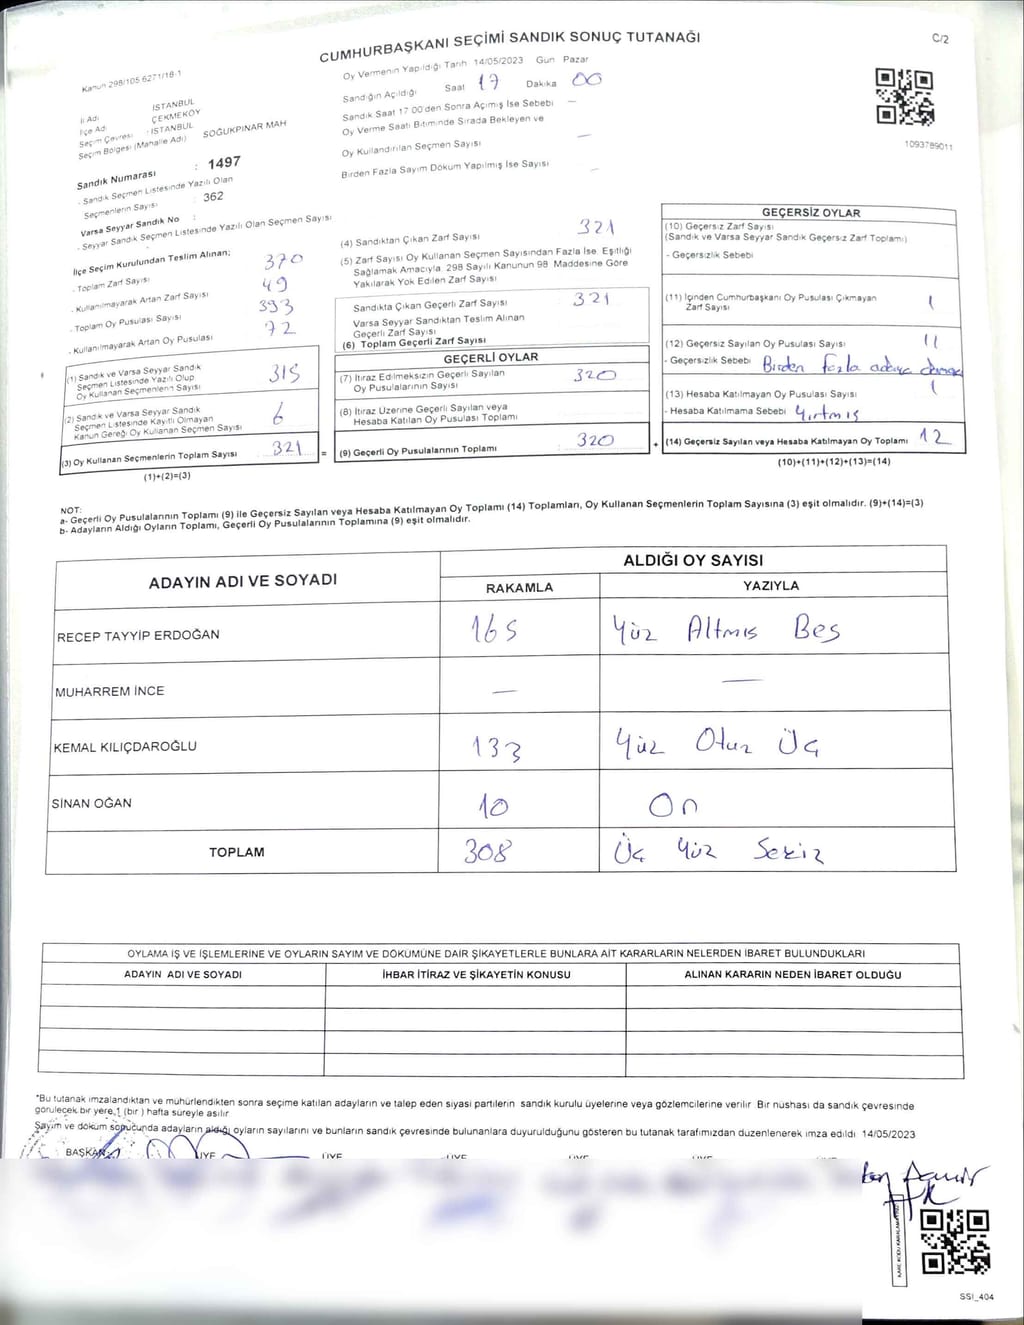 CUMHURBAŞKANI SEÇİMİ SANDIK SONUÇ TUTANAĞI
C/2
Kanun 298/105 6271/18-1
Oy Vermenin Yapıldığı Tarih 14/05/2023 Gün Pazar
Sandığın Açıldığı Saat 17 Dakika 00
Sandık Saat 17 00'den Sonra Açılmış İse Sebebi —
Oy Verme Saati Bitiminde Sırada Bekleyen ve
Oy Kullandırılan Seçmen Sayısı —
Birden Fazla Sayım Döküm Yapılmış İse Sayısı —
1093789011
İl Adı İSTANBUL
İlçe Adı ÇEKMEKÖY
Seçim Çevresi : İSTANBUL
Seçim Bölgesi (Mahalle Adı) SOĞUKPINAR MAH
Sandık Numarası : 1497
- Sandık Seçmen Listesinde Yazılı Olan
Seçmenlerin Sayısı : 362
Varsa Seyyar Sandık No :
- Seyyar Sandık Seçmen Listesinde Yazılı Olan Seçmen Sayısı
İlçe Seçim Kurulundan Teslim Alınan;
- Toplam Zarf Sayısı 370
- Kullanılmayarak Artan Zarf Sayısı 49
- Toplam Oy Pusulası Sayısı 393
- Kullanılmayarak Artan Oy Pusulası 72
(1) Sandık ve Varsa Seyyar Sandık
Seçmen Listesinde Yazılı Olup
Oy Kullanan Seçmenlerin Sayısı 315
(2) Sandık ve Varsa Seyyar Sandık
Seçmen Listesinde Kayıtlı Olmayan
Kanun Gereği Oy Kullanan Seçmen Sayısı 6
(3) Oy Kullanan Seçmenlerin Toplam Sayısı 321 =
(1)+(2)=(3)
(4) Sandıktan Çıkan Zarf Sayısı 321
(5) Zarf Sayısı Oy Kullanan Seçmen Sayısından Fazla İse, Eşitliği
Sağlamak Amacıyla, 298 Sayılı Kanunun 98. Maddesine Göre
Yakılarak Yok Edilen Zarf Sayısı
Sandıkta Çıkan Geçerli Zarf Sayısı 321
Varsa Seyyar Sandıktan Teslim Alınan
Geçerli Zarf Sayısı
(6) Toplam Geçerli Zarf Sayısı
GEÇERLİ OYLAR
(7) İtiraz Edilmeksizin Geçerli Sayılan
Oy Pusulalarının Sayısı 320
(8) İtiraz Üzerine Geçerli Sayılan veya
Hesaba Katılan Oy Pusulası Toplamı
(9) Geçerli Oy Pusulalarının Toplamı 320 +
GEÇERSİZ OYLAR
(10) Geçersiz Zarf Sayısı
(Sandık ve Varsa Seyyar Sandık Geçersiz Zarf Toplamı)
- Geçersizlik Sebebi
(11) İçinden Cumhurbaşkanı Oy Pusulası Çıkmayan
Zarf Sayısı 1
(12) Geçersiz Sayılan Oy Pusulası Sayısı 11
- Geçersizlik Sebebi Birden fazla adaya
(13) Hesaba Katılmayan Oy Pusulası Sayısı 1
- Hesaba Katılmama Sebebi Yırtmış
(14) Geçersiz Sayılan veya Hesaba Katılmayan Oy Toplamı 12
(10)+(11)+(12)+(13)=(14)
NOT:
a- Geçerli Oy Pusulalarının Toplamı (9) ile Geçersiz Sayılan veya Hesaba Katılmayan Oy Toplamı (14) Toplamları, Oy Kullanan Seçmenlerin Toplam Sayısına (3) eşit olmalıdır. (9)+(14)=(3)
b- Adayların Aldığı Oyların Toplamı, Geçerli Oy Pusulalarının Toplamına (9) eşit olmalıdır.
ADAYIN ADI VE SOYADI ALDIĞI OY SAYISI
RAKAMLA YAZIYLA
RECEP TAYYİP ERDOĞAN 165 Yüz Altmış Beş
MUHARREM İNCE — —
KEMAL KILIÇDAROĞLU 133 Yüz Otuz Üç
SİNAN OĞAN 10 On
TOPLAM 308 Üç Yüz Sekiz
OYLAMA İŞ VE İŞLEMLERİNE VE OYLARIN SAYIM VE DÖKÜMÜNE DAİR ŞİKAYETLERLE BUNLARA AİT KARARLARIN NELERDEN İBARET BULUNDUKLARI
ADAYIN ADI VE SOYADI İHBAR İTİRAZ VE ŞİKAYETİN KONUSU ALINAN KARARIN NEDEN İBARET OLDUĞU
*Bu tutanak imzalandıktan ve mühürlendikten sonra seçime katılan adayların ve talep eden siyasi partilerin sandık kurulu üyelerine veya gözlemcilerine verilir. Bir nüshası da sandık çevresinde
görülecek bir yere 1 (bir ) hafta süreyle asılır
Sayım ve döküm sonucunda adayların aldığı oyların sayılarını ve bunların sandık çevresinde bulunanlara duyurulduğunu gösteren bu tutanak tarafımızdan düzenlenerek imza edildi 14/05/2023
BAŞKAN ÜYE ÜYE ÜYE ÜYE ÜYE
SSI_404